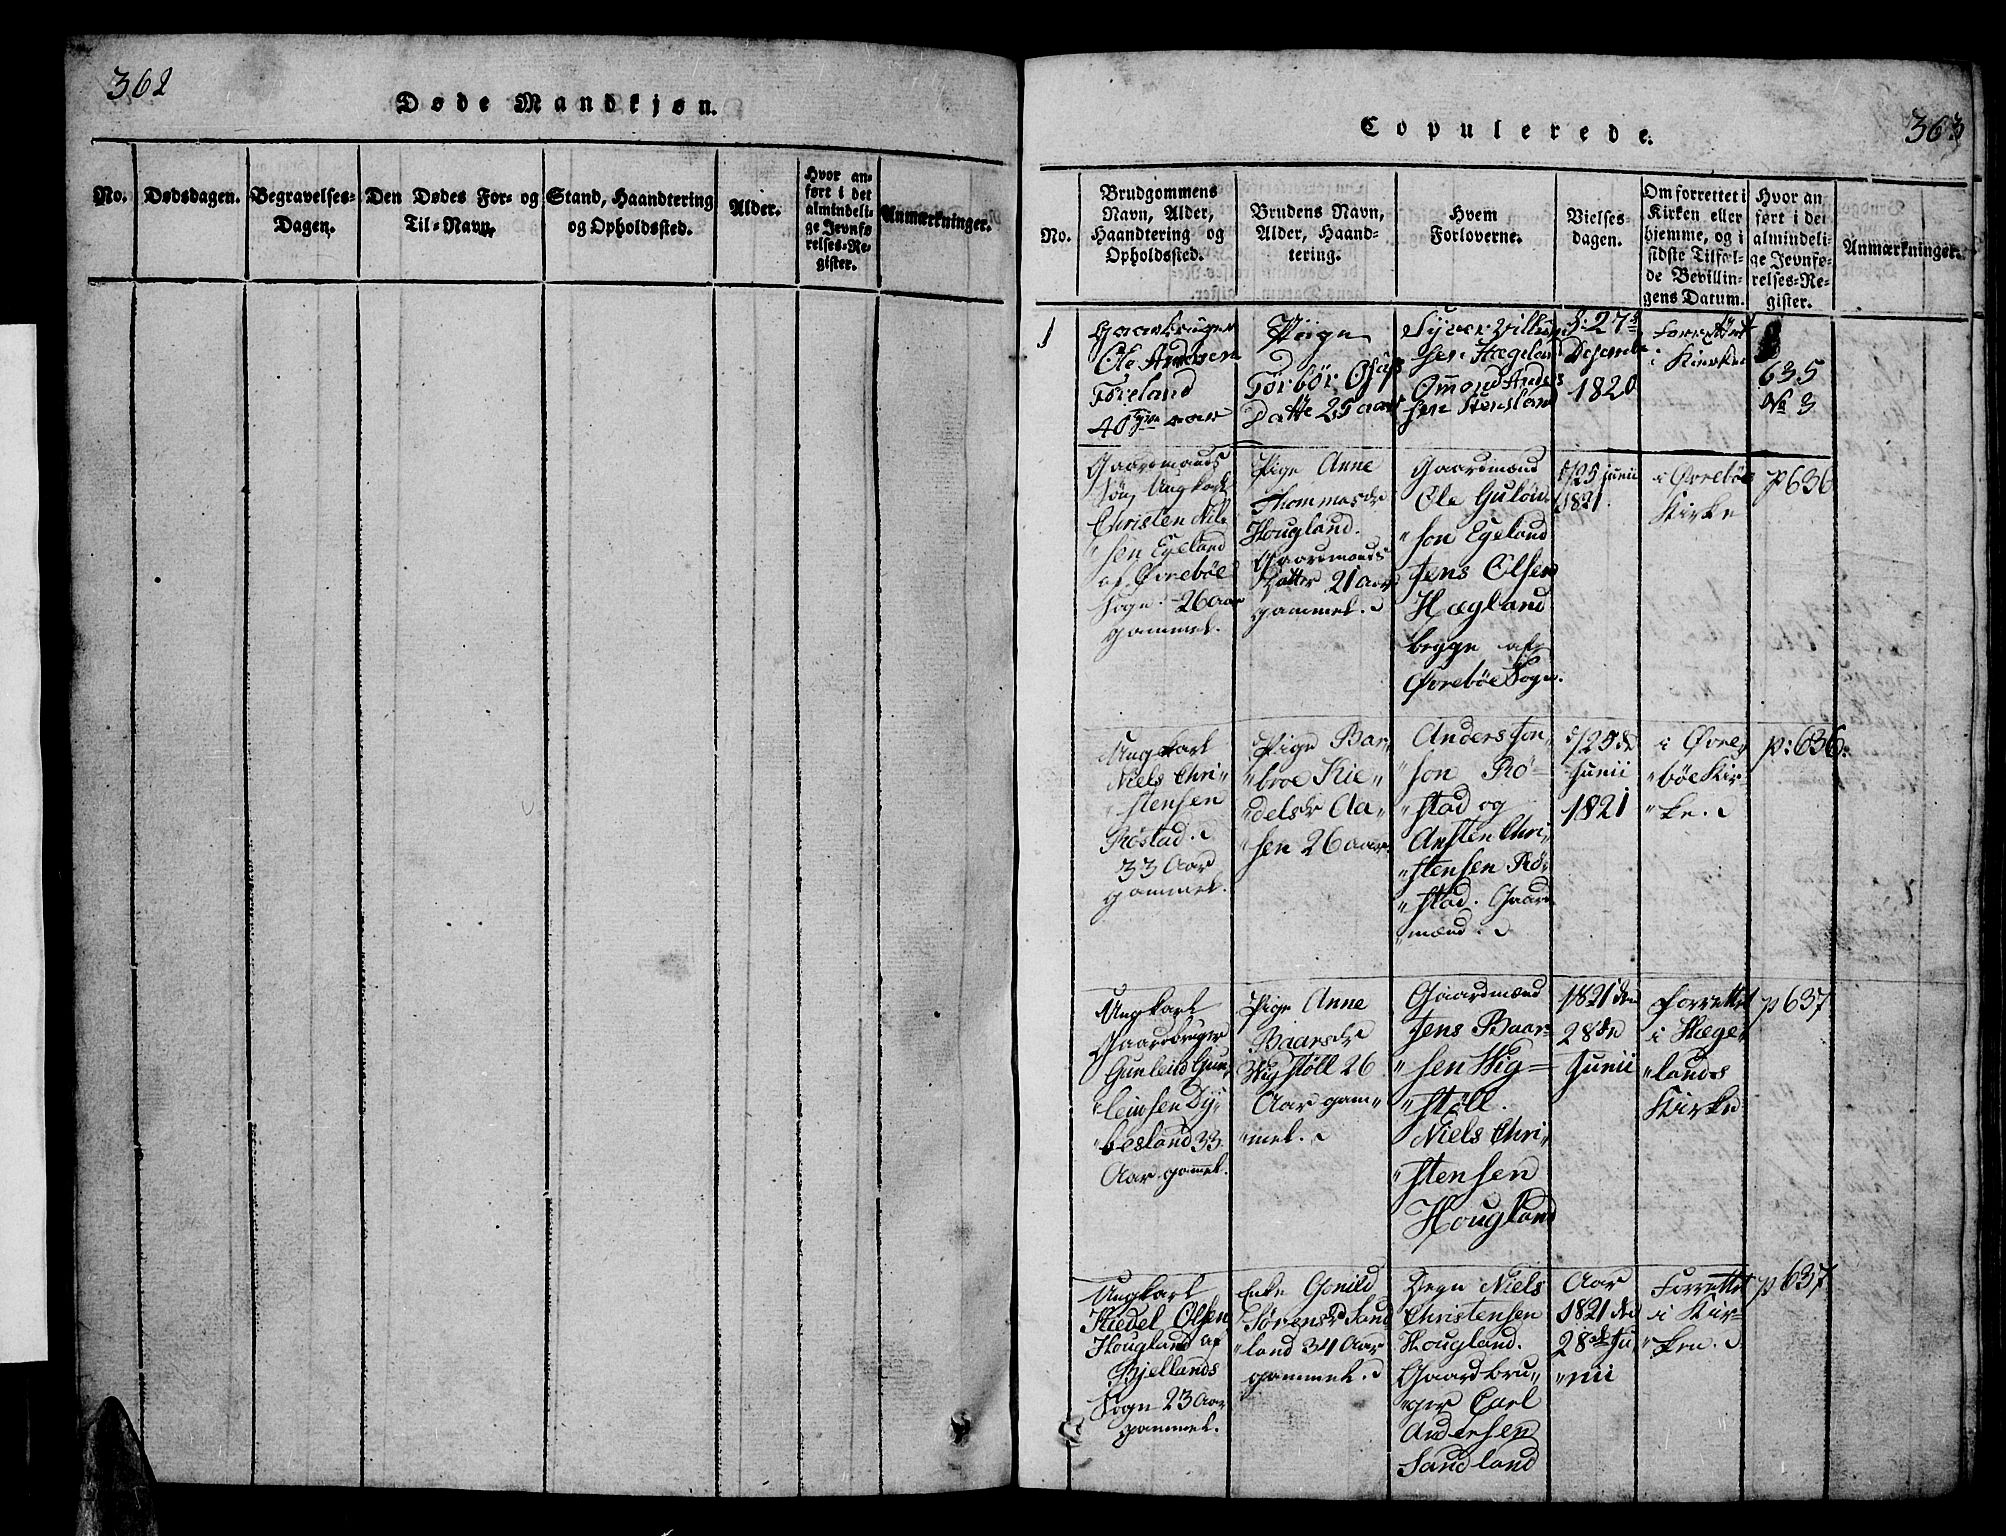 362
Døde Mandkjøn.
No.
Dødsdagen.
Begravelses-
Dagen.
Den Dødes For- og
Til-Navn.
Stand, Haandtering
og Opholdssted.
Alder.
Hvor an-
ført i det
almindeli-
ge Jevnfø-
relses-Re-
gister.
Anmærkninger.
363
Copulerede.
No.
Brudgommens
Navn, Alder,
Haandtering og
Opholdssted.
Brudens Navn,
Alder, Haand-
tering.
Hvem
Forloverne.
Vielses-
dagen.
Om forrettet i
Kirken eller
hjemme, og i
sidste Tilfæl-
de Bevillin-
gens Datum.
Hvor an
ført i det
almindeli-
ge Jevnfø-
relses-Re-
gister.
Anmærkninger.
1
Ole
40 aar
Pige
Torbør
Datte 25 aar
Syver Villum
sen Hægeland
Omond Anders
sen Stensland
27
Desember
1820
i Kirken
635
No 3
Gaardmands
Søn Ungkarl
Christen Nil-
"sen Egeland
af Øvrebøe
Sogn. 26 Aar
gammel.
Pige Anne
Thommesdr
Hougland.
Gaardmands
Datter 21 Aar
gammel.
Gaardmænd
Ole
"son Egeland
Jens Olsen
Hægland
begge af
Øvrebøe Sogn.
d/25 Junii
1821.
i Øvrebøe
Kirke
p 636
Ungkarl
Niels Chri-
"stensen
Røstad.
33 Aar
gammel.
Pige Bar-
"broe Kie-
"delsdr Aa-
"sen 26 aar.
Anders Jon-
"son Rø-
"stad og
Chri-
"stensen Rø-
"stad. Gaard
"mænd.
d/25de
Junii
1821
i Øvre-
"bøe Kir-
"ke.
p: 636.
Ungkarl
Gaardbruger
Gunleid Gun-
"leidsen Dy-
"besland 33
Aar gamel.
Pige Anne
Baarsdr
Wigstøll 26
Aar gam-
"mel.
Gaardmænd
Jens Baar-
"sen Wig=
"støll.
Niels Chri-
"stensen
Hougland
1821 den
28de
Junii
Forrettet
i Hæge-
"lands
Kirke
p 637
Ungkarl
Kiedel Olsen
Hougland af
Bjellands
Sogn 23 Aar
gammel.
Enke Gonild
Sørensdr Sand
"land 34 Aar
gammel.
Degn Niels
Christensen
Hougland.
Gaardbru-
"ger Carl
Andersen
Sandland
Aar
1821 den
28de Ju-
"nii
Forrettet
i Kir-
"ken.
p 637